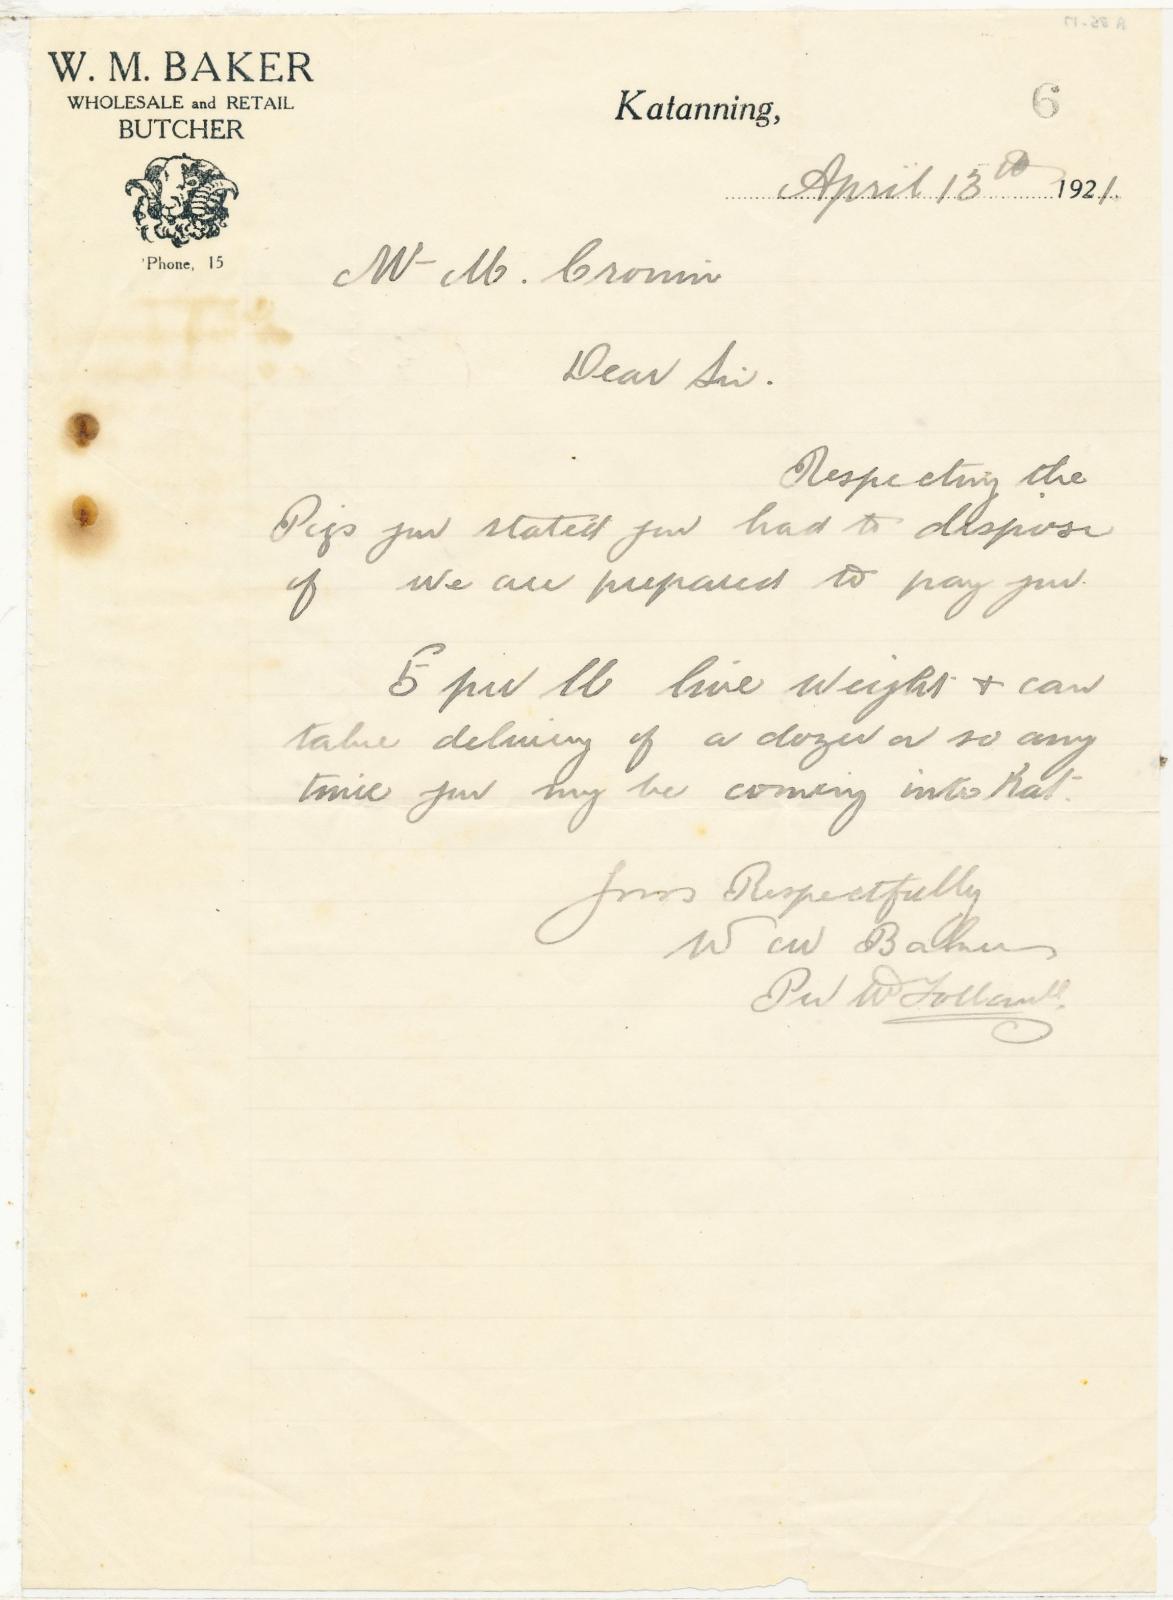 W. M. BAKER
WHOLESALE and RETAIL
BUTCHER
'Phone, 15
Katanning,
6
April 13th 1921.
Mr M. Cronin
Dear Sir.
Respecting the
Pigs you stated you had to dispose
of we are prepared to pay you
5 per lb live weight + can
take delivery of a dozen or so any
time you may be coming into Kat.
Yours Respectfully
W M Baker
Per W